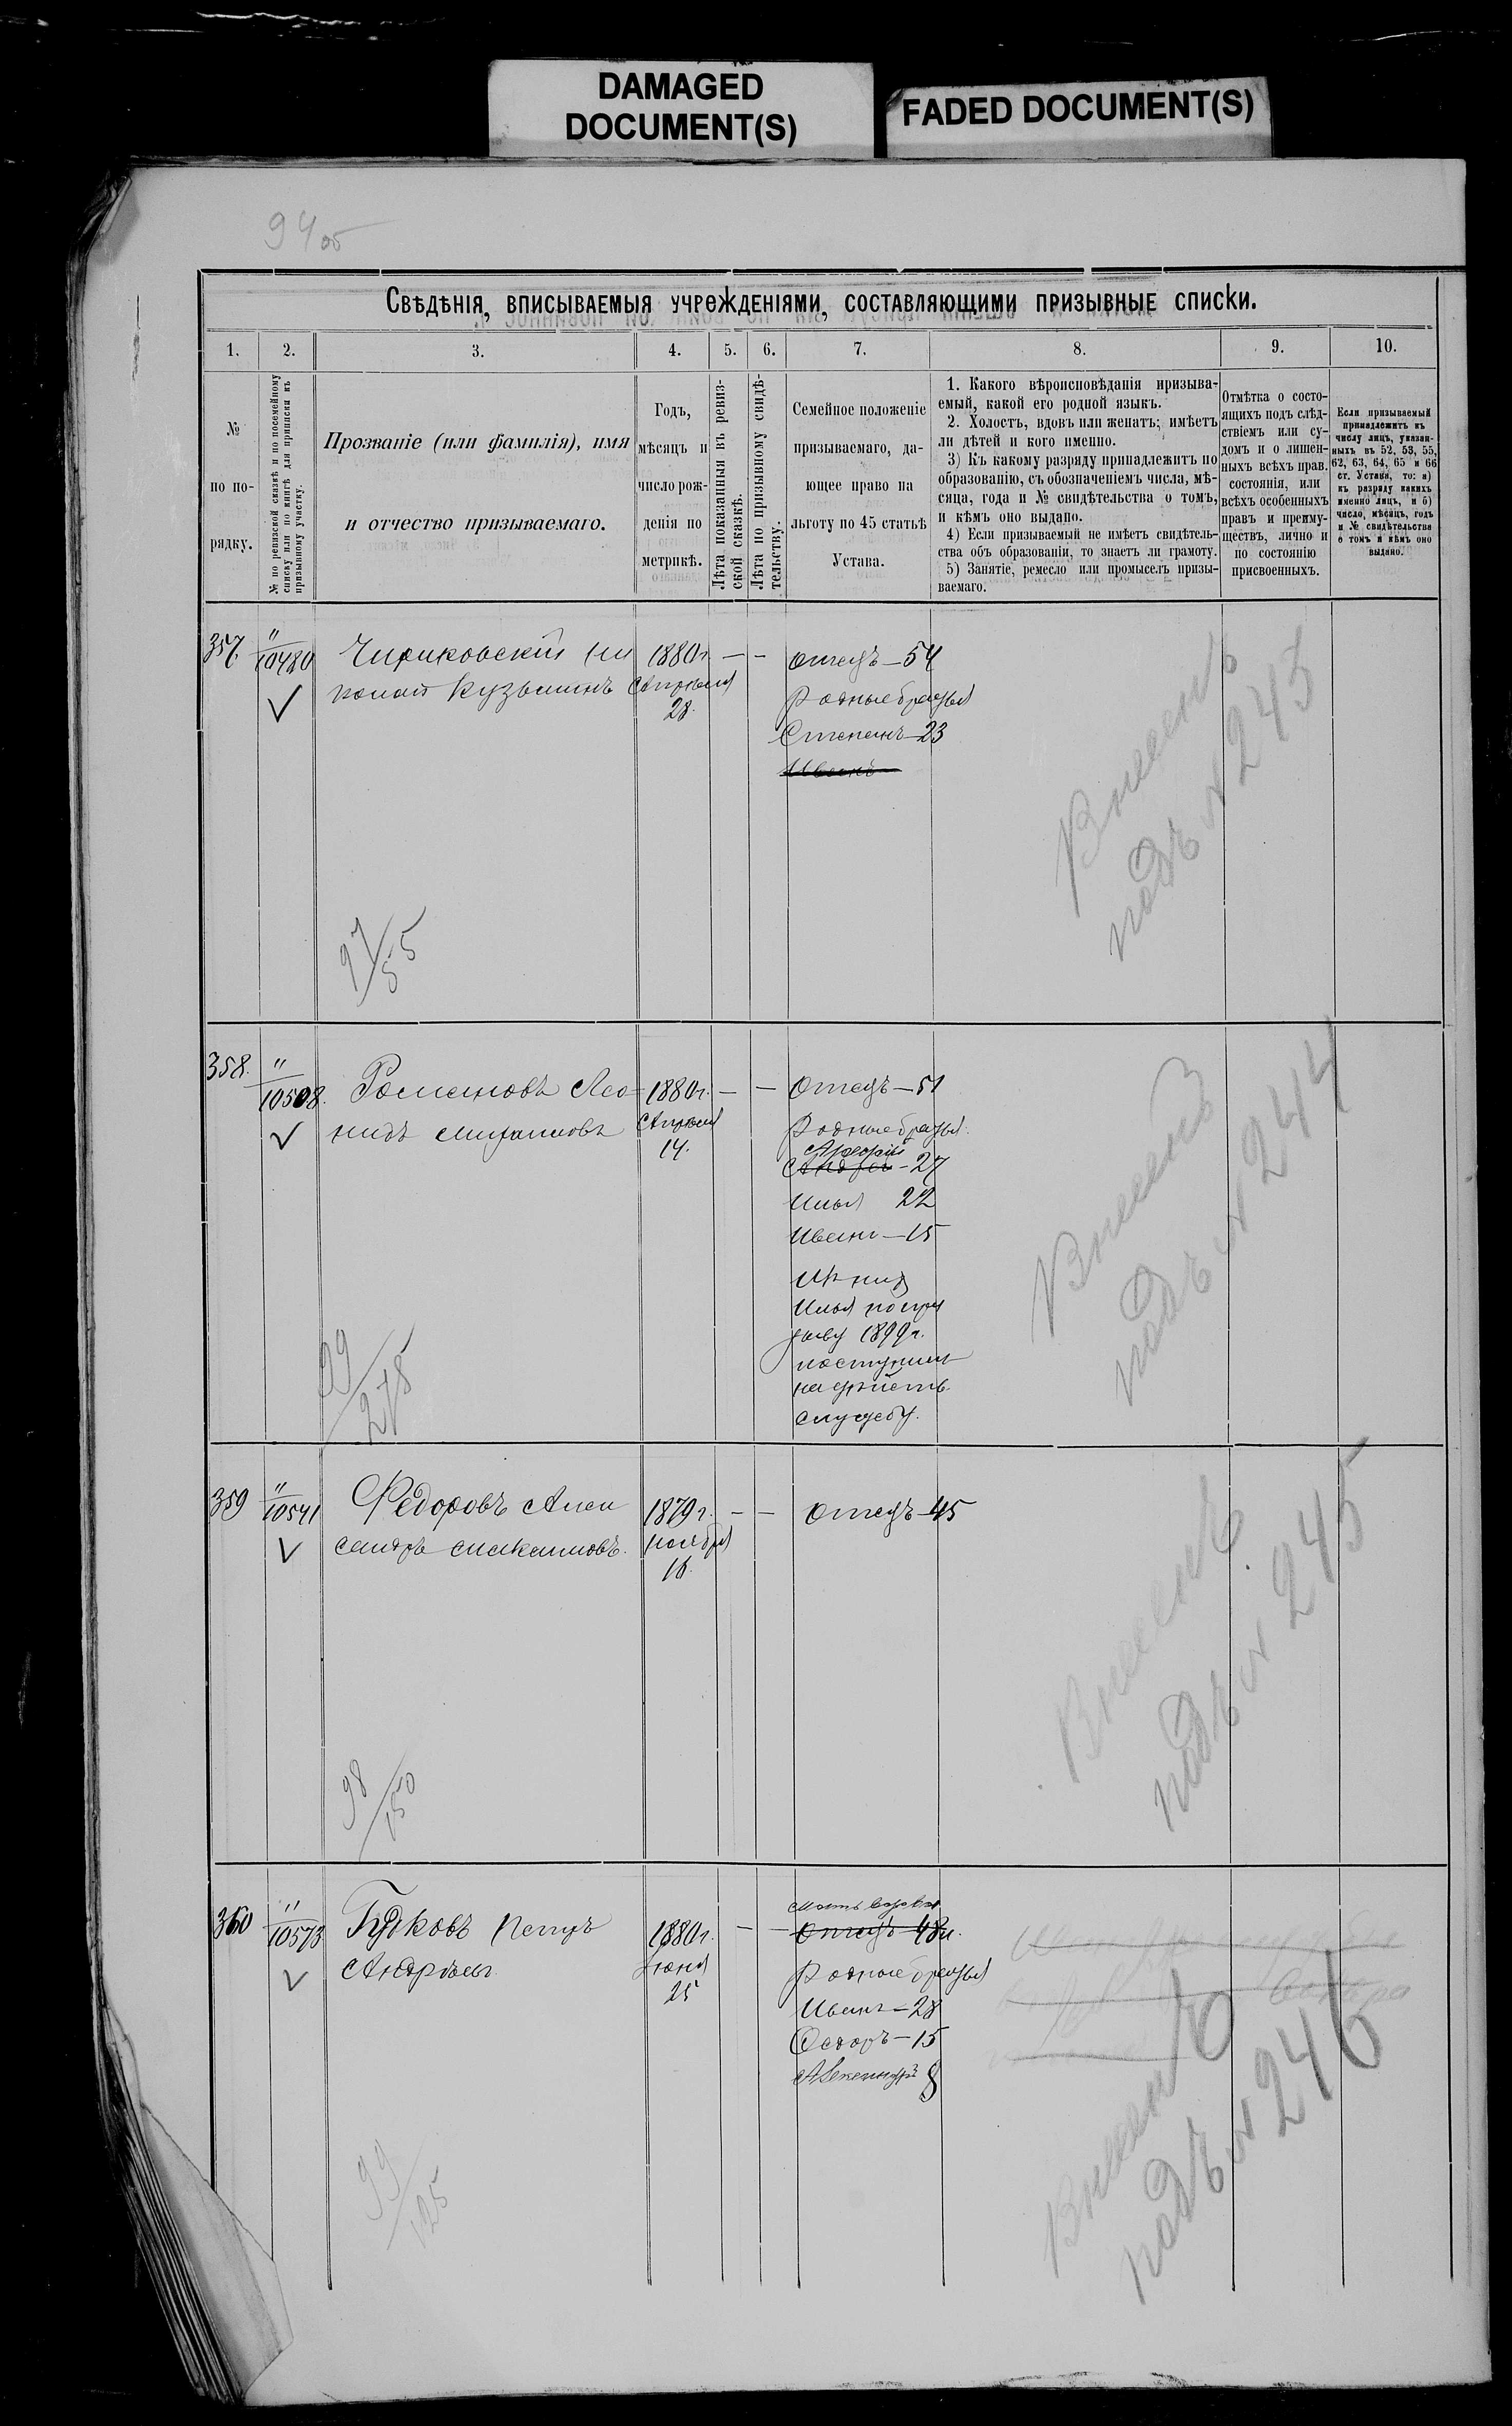 DAMAGED
DOCUMENT(S)
FADED DOCUMENT(S)
94 об
Свѣдѣнія, вписываемыя учрежденіями, составляющими призывные списки.
1. 2. 3. 4. 5. 6. 7. 8. 9. 10.
№
по по-
рядку.
№ по ревизской сказкѣ и по посемейному
списку или по книгѣ для приписки къ
призывному участку.
Прозваніе (или фамилія), имя
и отчество призываемаго.
Годъ,
мѣсяцъ и
число рож-
денія по
метрикѣ.
Лѣта показанныя въ ревиз-
ской сказкѣ.
Лѣта по призывному свидѣ-
тельству.
Семейное положеніе
призываемаго, да-
ющее право на
льготу по 45 статьѣ
Устава.
1. Какого вѣроисповѣданія призыва-
емый, какой его родной языкъ.
2. Холостъ, вдовъ или женатъ; имѣетъ
ли дѣтей и кого именно.
3) Къ какому разряду принадлежитъ по
образованію, съ обозначеніемъ числа, мѣ-
сяца, года и № свидѣтельства о томъ,
и кѣмъ оно выдано.
4) Если призываемый не имѣетъ свидѣтель-
ства объ образованіи, то знаетъ ли грамоту.
5) Занятіе, ремесло или промыселъ призы-
ваемаго.
Отмѣтка о состо-
ящихъ подъ слѣд-
ствіемъ или су-
домъ и о лишен-
ныхъ всѣхъ прав.
состоянія, или
всѣхъ особенныхъ
правъ и преиму-
ществъ, лично и
по состоянію
присвоенныхъ.
Если призываемый
принадлежитъ къ
числу лицъ, указан-
ныхъ въ 52, 53, 55,
62, 63, 64, 65 и 66
ст. Устава, то: а)
къ разряду какихъ
именно лицъ, и б)
число, мѣсяцъ, годъ
и № свидѣтельства
о томъ и кѣмъ оно
выдано.
357. " 1880г. — — отецъ—54
10480 Кузьминъ Апрѣля Родные братья
28. Степанъ—23
Иванъ
Внесенъ
подъ № 243
97/55
358. " Романовъ Лео- 1880г. — — Отецъ—51
10508. нидъ Апрѣля Родные братья
14. Андрей—27
Илья 22
Иванъ—15
Илья по при
зыву 1899г.
поступилъ
на дѣйств.
службу.
Внесенъ
подъ № 244
99/278
359 " Федоровъ Алек 1879г. — — отецъ—45
10541 сандръ Максимовъ. ноября
16.
Внесенъ
подъ № 245
98/150
мать вдова
360 " Петръ 1880г. — — Отецъ 48л.
10573 Андрѣевъ Іюня Родные братья
25 Иванъ—28
Ѳедоръ—15
Александръ 8
Внесенъ
подъ № 246
99/125